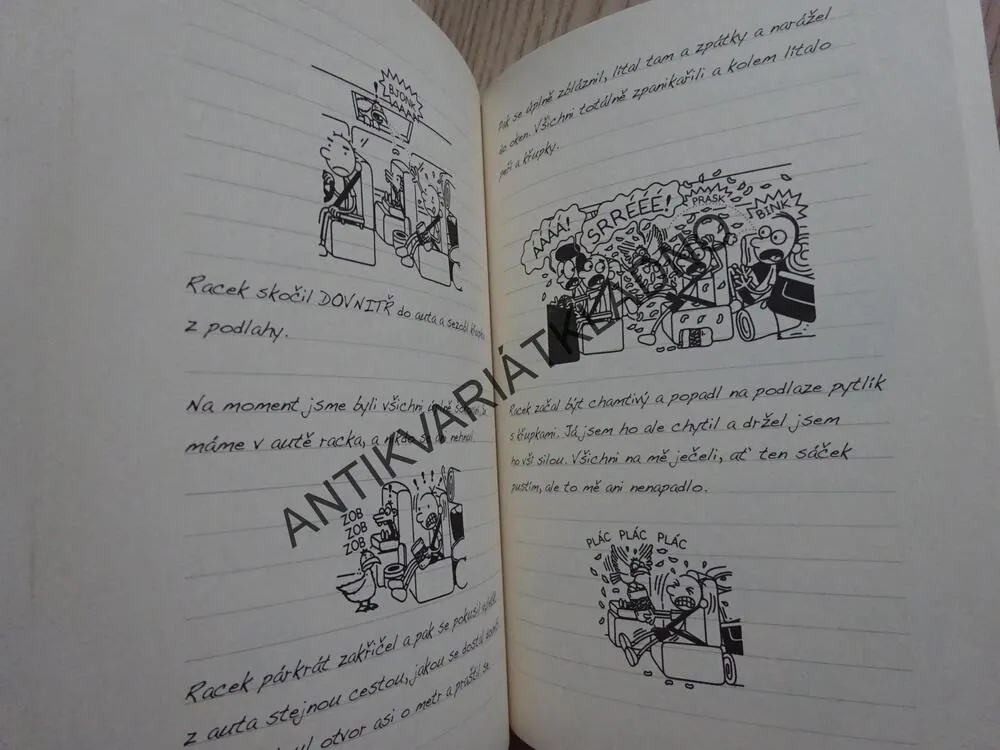 BJONK
AAAA
Racek skočil DOVNITŘ do auta a sezobl křupku
z podlahy.
Na moment jsme byli všichni úplně
máme v autě racka, a nikdo se ani nehnul.
ZOB
ZOB
ZOB
Racek párkrát zakřičel a pak se pokusil
z auta stejnou cestou, jakou se dostal
otvor asi o metr a praštil se
pak se úplně zbláznil, lítal tam a zpátky a narážel
do oken. Všichni totálně zpanikařili a kolem lítalo
peří a křupky.
ÁÁÁÁ!
SRÉÉÉ!
PRASK
BINK
Racek začal být chamtivý a popadl na podlaze pytlík
s křupkami. Já jsem ho ale chytil a držel jsem
ho vší silou. Všichni na mě ječeli, ať ten sáček
pustím, ale to mě ani nenapadlo.
PLÁC PLÁC PLÁC
ANTIKVARIÁTKLADNO